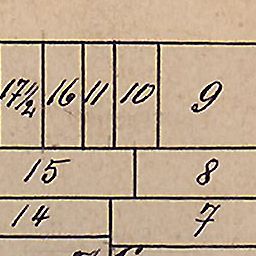 17½ 16 11 10 9
15 8
14 7